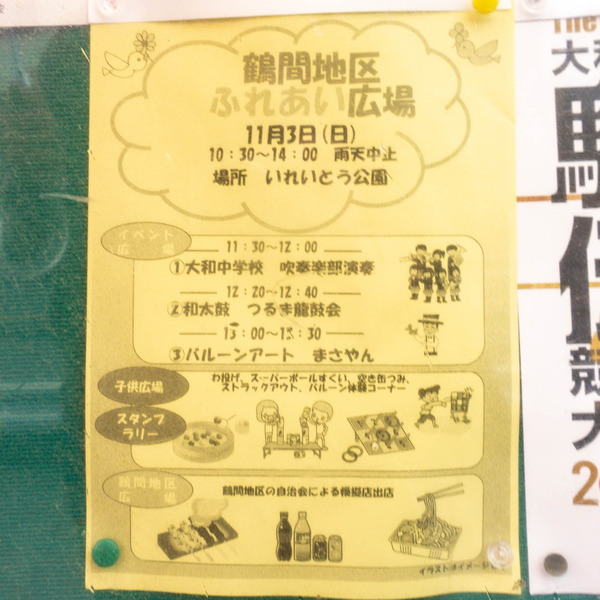 鶴間地区
ふれあい広場
11月3日(日)
10:30~14:00 雨天中止
場所 いれいとう公園
イベント
広場
11:30~12:00
①大和中学校 吹奏楽部演奏
12:20~12:40
②和太鼓 つるま龍鼓会
13:00~13:30
③バルーンアート まさやん
子供広場
わ投げ、スーパーボールすくい、空き缶つみ、
ストラックアウト、バルーン体験コーナー
スタンプ
ラリー
鶴間地区
広場
鶴間地区の自治会による模擬店出店
イラストはイメージ
The
大和
駅伝
競
大
20